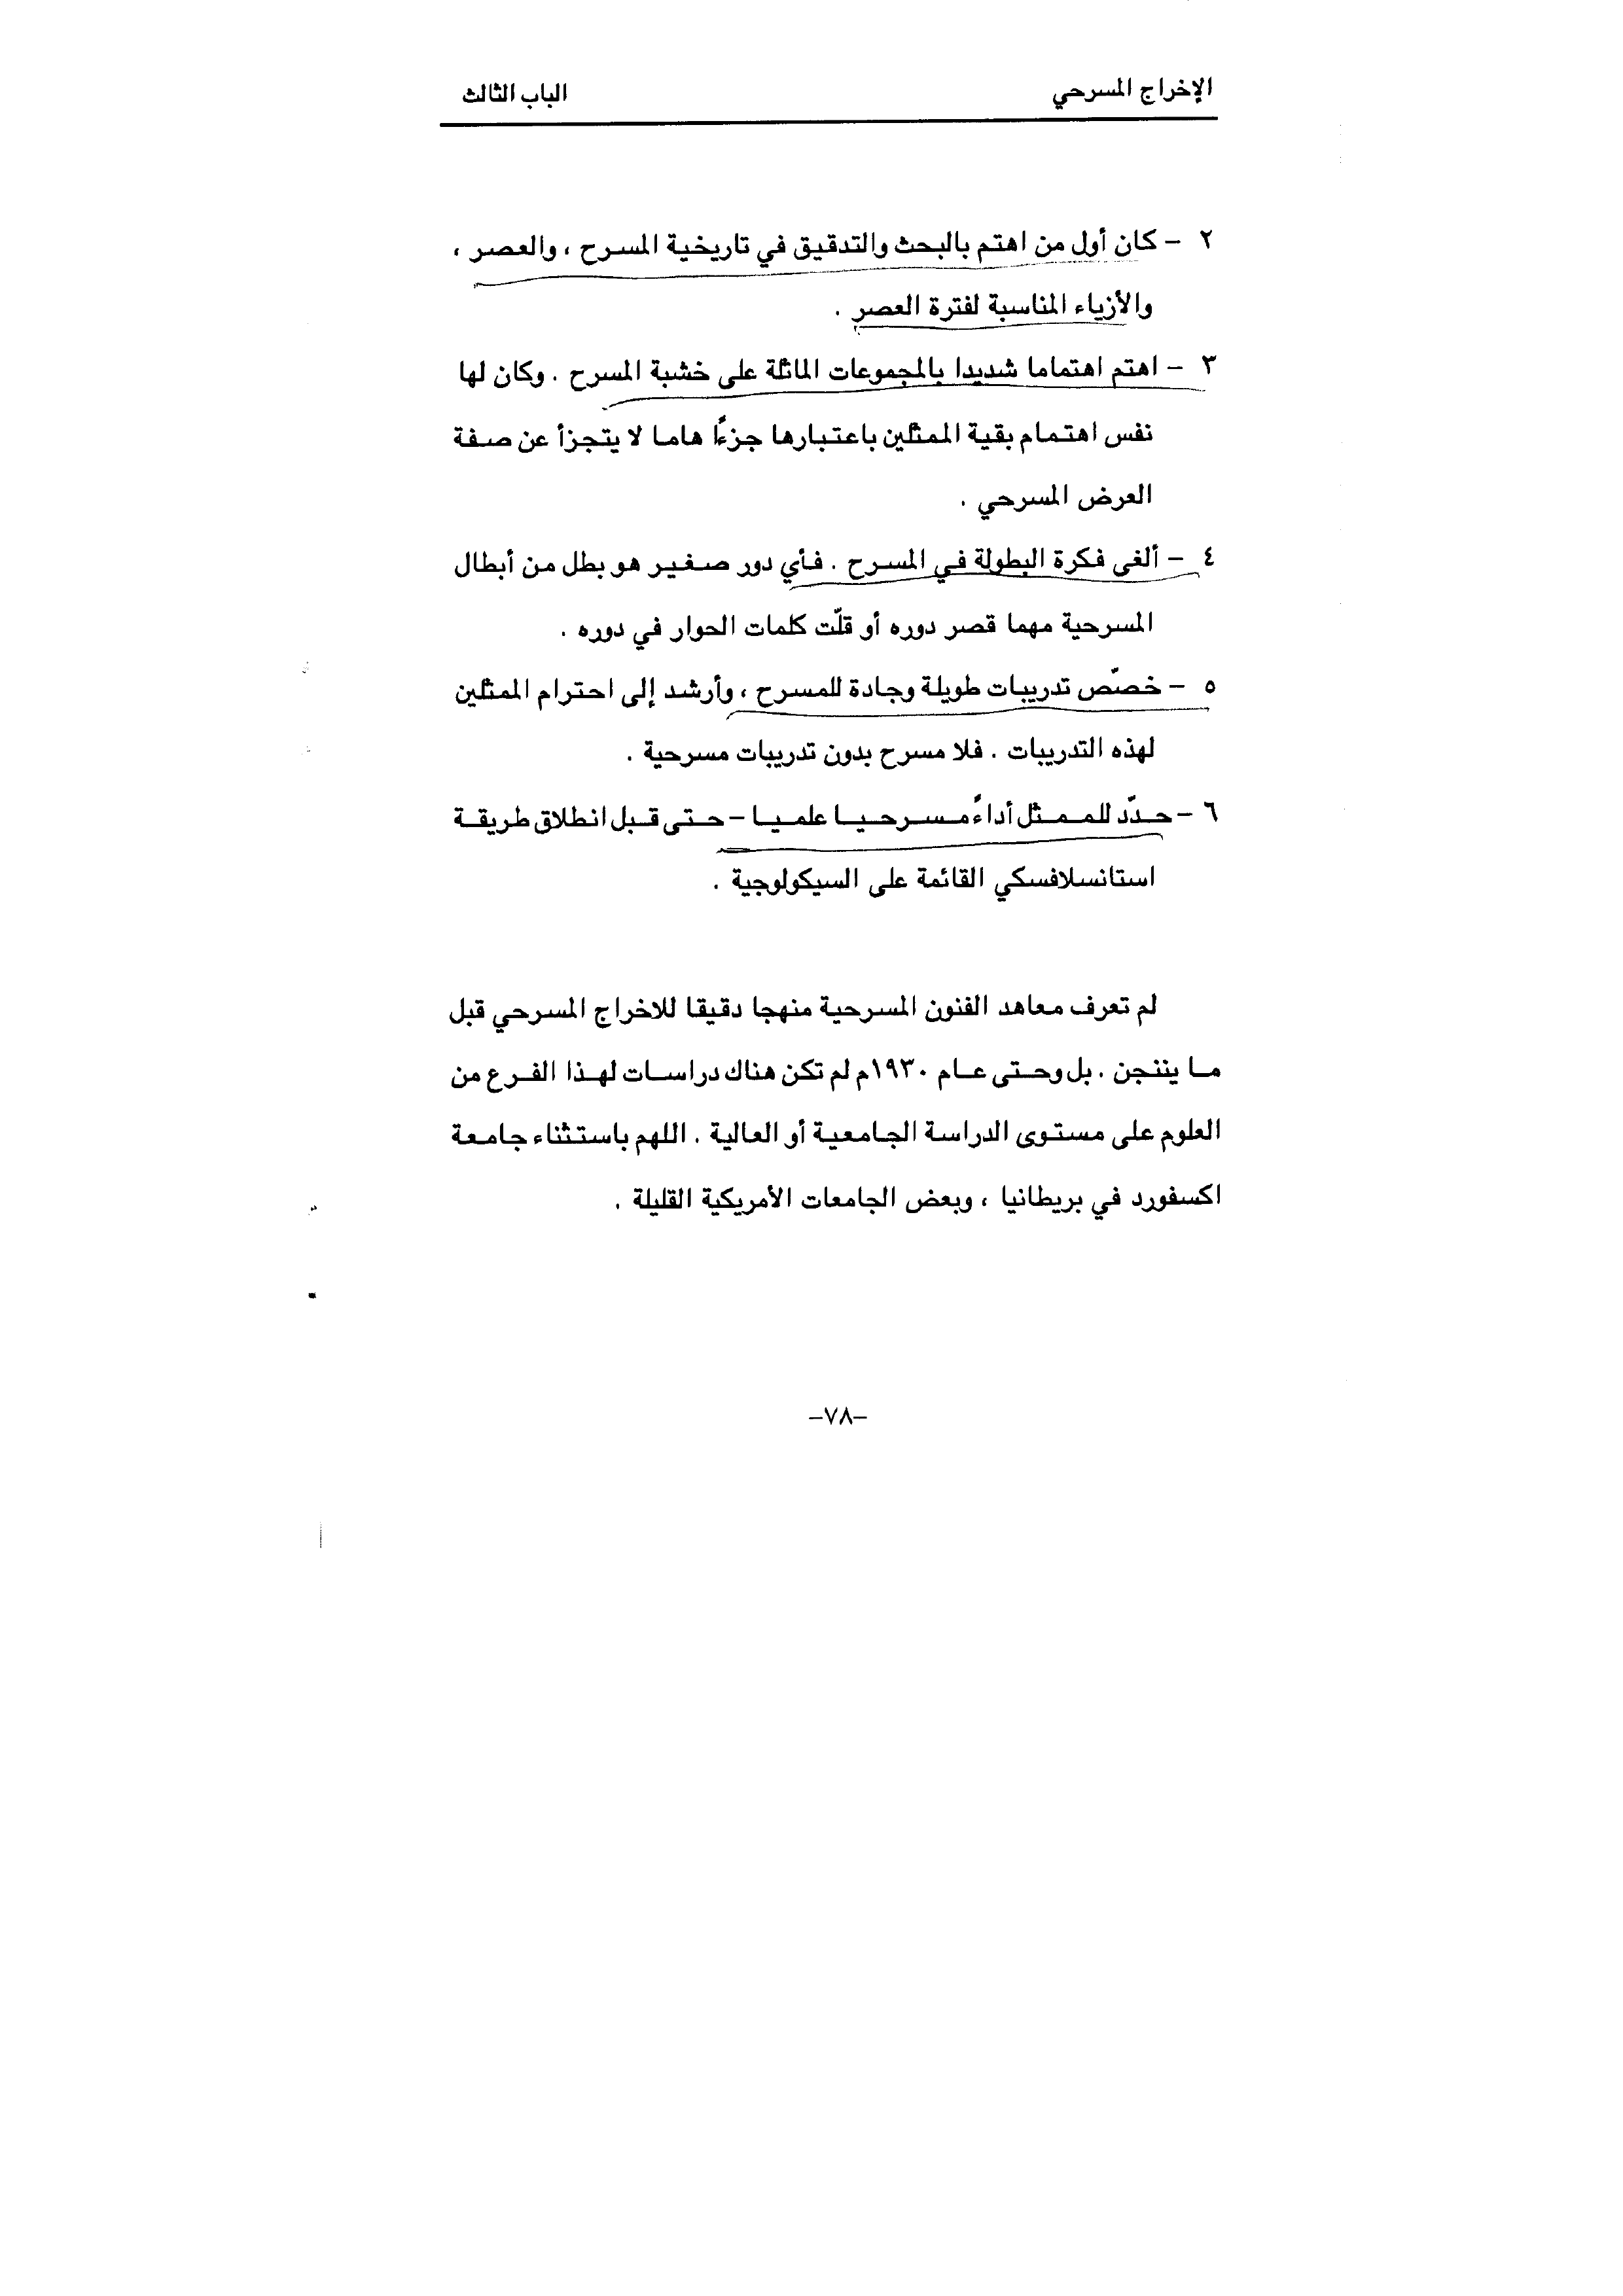 الإخراج المسرحي
الباب الثالث
٢ - كان أول من اهتم بالبحث والتدقيق في تاريخية المسرح ، والعصر ،
والأزياء المناسبة لفترة العصر .
٣ - اهتم اهتماما شديدا بالمجموعات الماثلة على خشبة المسرح . وكان لها
نفس اهتمام بقية الممثلين باعتبارها جزءًا هاما لا يتجزأ عن صفة
العرض المسرحي .
٤ - ألغى فكرة البطولة في المسرح . فأي دور صغير هو بطل من أبطال
المسرحية مهما قصر دوره أو قلّت كلمات الحوار في دوره .
٥ - خصّص تدريبات طويلة وجادة للمسرح ، وأرشد إلى احترام الممثلين
لهذه التدريبات . فلا مسرح بدون تدريبات مسرحية .
٦ - حدّد للممثل أداءً مسرحيا علميا - حتى قبل انطلاق طريقة
استانسلافسكي القائمة على السيكولوجية .
لم تعرف معاهد الفنون المسرحية منهجا دقيقا للاخراج المسرحي قبل
ما يننجن . بل وحتى عام ١٩٣٠م لم تكن هناك دراسات لهذا الفرع من
العلوم على مستوى الدراسة الجامعية أو العالية . اللهم باستثناء جامعة
اكسفورد في بريطانيا ، وبعض الجامعات الأمريكية القليلة .
-٧٨-